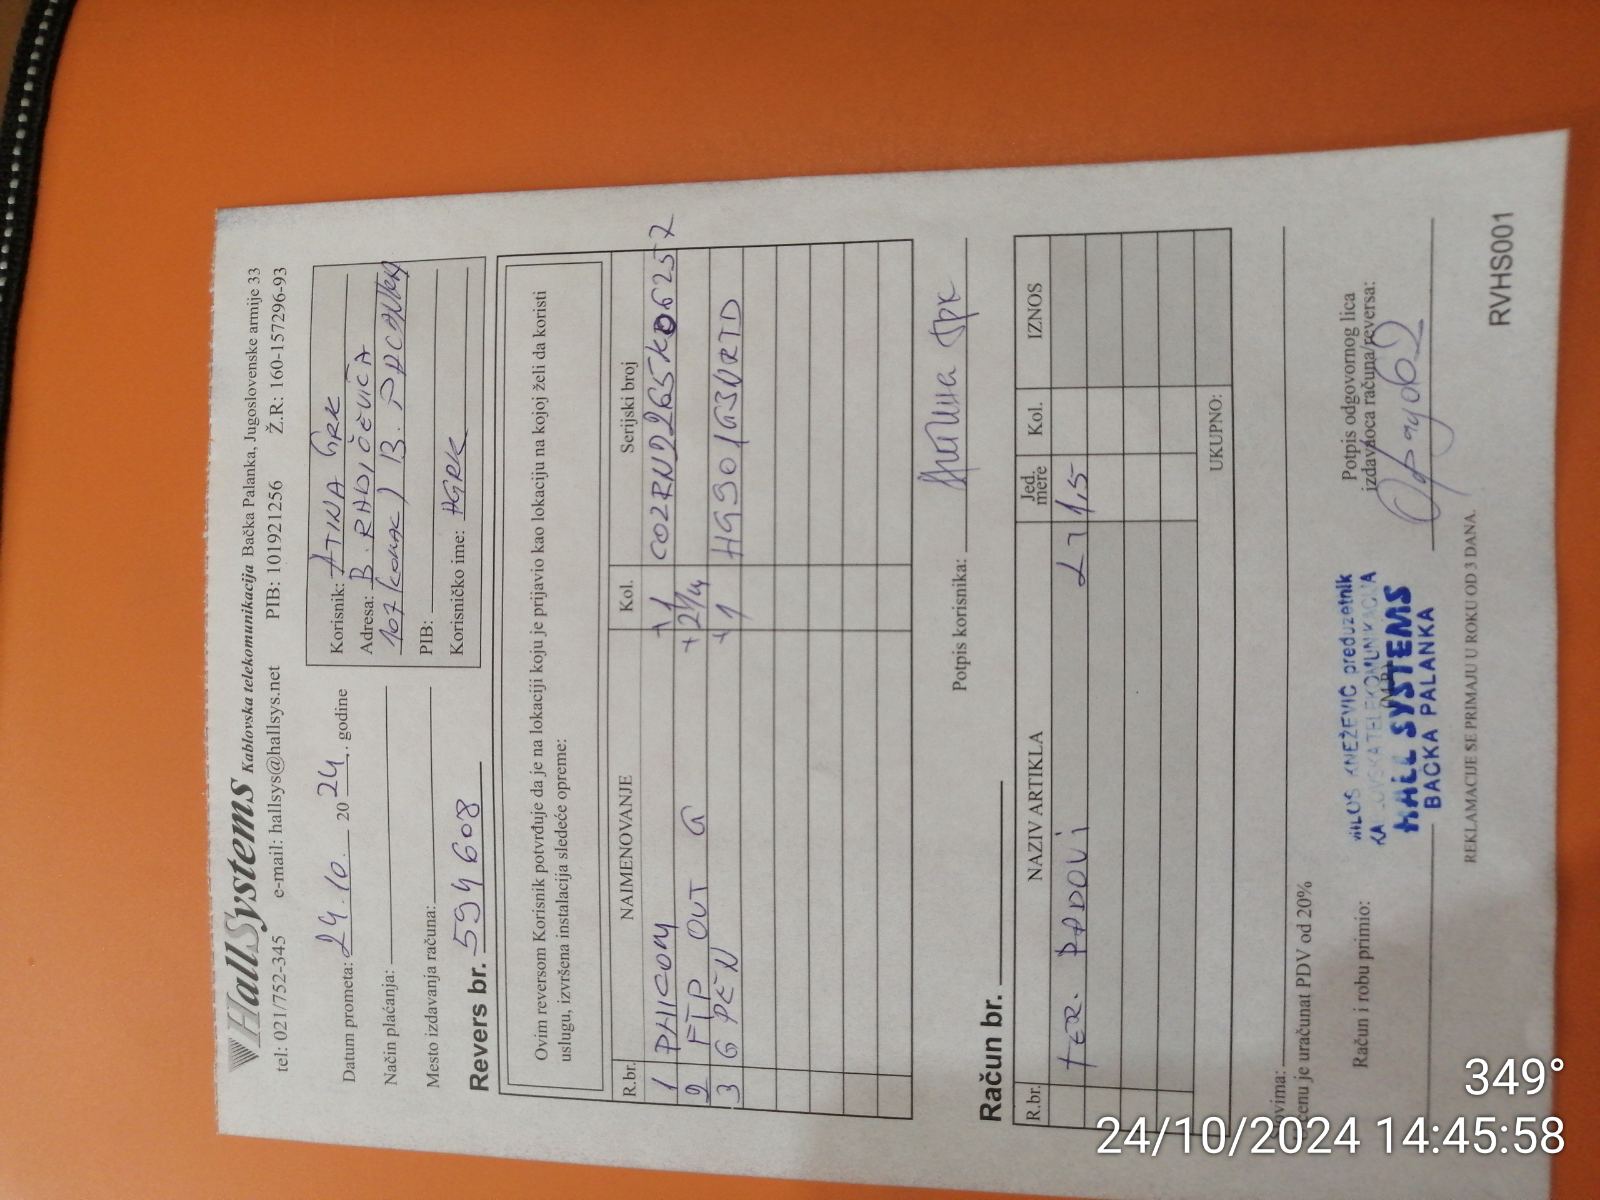 HallSystems Kablovska telekomunikacija Bačka Palanka, Jugoslovenske armije 33
tel: 021/752-345 e-mail: hallsys@hallsys.net PIB: 101921256 Ž.R: 160-157296-93
Datum prometa: 24.10. 20 24. godine
Način plaćanja:
Mesto izdavanja računa:
Revers br. 594608
Korisnik: ATINA GRK
Adresa: B. RADIČEVIĆA
107 B.
PIB:
Korisničko ime: AGRK
Ovim reversom Korisnik potvrđuje da je na lokaciji koju je prijavio kao lokaciju na kojoj želi da koristi
uslugu, izvršena instalacija sledeće opreme:
R.br. NAIMENOVANJE Kol. Serijski broj
1 PHICOM +1 CO2RND265K06257
2 FTP OUT G +21m
3 G PEN +1
Potpis korisnika: Атина Грк
Račun br.
R.br. NAZIV ARTIKLA Jed. mere Kol. IZNOS
TER. RADOVI L7 1,5
UKUPNO:
ovima:
cenu je uračunat PDV od 20%
Račun i robu primio:
MILOŠ KNEŽEVIĆ preduzetnik
KABLOVSKA TELEKOMUNIKACIJA
HALL SYSTEMS
BAČKA PALANKA
Potpis odgovornog lica
izdavaoca računa/reversa:
REKLAMACIJE SE PRIMAJU U ROKU OD 3 DANA.
RVHS001
349°
24/10/2024 14:45:58